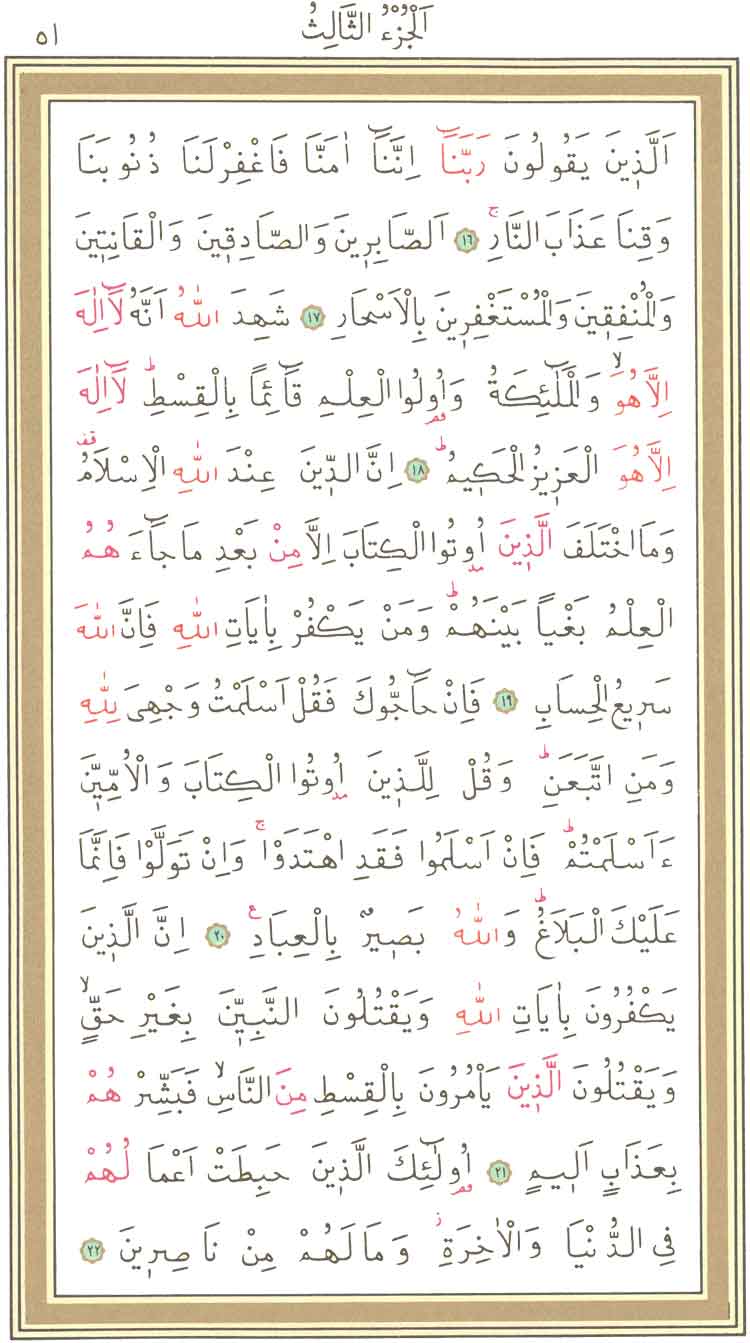 اَلْجُزْءُ الثَّالِثُ ٥١
اَلَّذ۪ينَ يَقُولُونَ رَبَّنَٓا اِنَّنَٓا اٰمَنَّا فَاغْفِرْلَنَا ذُنُوبَنَا
وَقِنَا عَذَابَ النَّارِۚ ﴿١٦﴾ اَلصَّابِر۪ينَ وَالصَّادِق۪ينَ وَالْقَانِت۪ينَ
وَالْمُنْفِق۪ينَ وَالْمُسْتَغْفِر۪ينَ بِالْاَسْحَارِ ﴿١٧﴾ شَهِدَ اللّٰهُ اَنَّهُ لَٓا اِلٰهَ
اِلَّا هُوَۙ وَالْمَلٰٓئِكَةُ وَاُو۬لُوا الْعِلْمِ قَٓائِمًا بِالْقِسْطِۜ لَٓا اِلٰهَ
اِلَّا هُوَ الْعَز۪يزُ الْحَك۪يمُۜ ﴿١٨﴾ اِنَّ الدّ۪ينَ عِنْدَ اللّٰهِ الْاِسْلَامُ۠
وَمَا اخْتَلَفَ الَّذ۪ينَ اُو۫تُوا الْكِتَابَ اِلَّا مِنْ بَعْدِ مَا جَٓاءَ هُمُ
الْعِلْمُ بَغْيًا بَيْنَهُمْۜ وَمَنْ يَكْفُرْ بِاٰيَاتِ اللّٰهِ فَاِنَّ اللّٰهَ
سَر۪يعُ الْحِسَابِ ﴿١٩﴾ فَاِنْ حَٓاجُّوكَ فَقُلْ اَسْلَمْتُ وَجْهِيَ لِلّٰهِ
وَمَنِ اتَّبَعَنِۜ وَقُلْ لِلَّذ۪ينَ اُو۫تُوا الْكِتَابَ وَالْاُمِّيّ۪نَ
ءَاَسْلَمْتُمْۜ فَاِنْ اَسْلَمُوا فَقَدِ اهْتَدَوْاۚ وَاِنْ تَوَلَّوْا فَاِنَّمَا
عَلَيْكَ الْبَلَاغُۜ وَاللّٰهُ بَص۪يرٌ بِالْعِبَادِ۟ ﴿٢٠﴾ اِنَّ الَّذ۪ينَ
يَكْفُرُونَ بِاٰيَاتِ اللّٰهِ وَيَقْتُلُونَ النَّبِيّ۪نَ بِغَيْرِ حَقٍّۙ
وَيَقْتُلُونَ الَّذ۪ينَ يَأْمُرُونَ بِالْقِسْطِ مِنَ النَّاسِۙ فَبَشِّرْ هُمْ
بِعَذَابٍ اَل۪يمٍ ﴿٢١﴾ اُو۬لٰٓئِكَ الَّذ۪ينَ حَبِطَتْ اَعْمَا لُهُمْ
فِي الدُّنْيَا وَالْاٰخِرَةِۘ وَمَا لَهُمْ مِنْ نَاصِر۪ينَ ﴿٢٢﴾